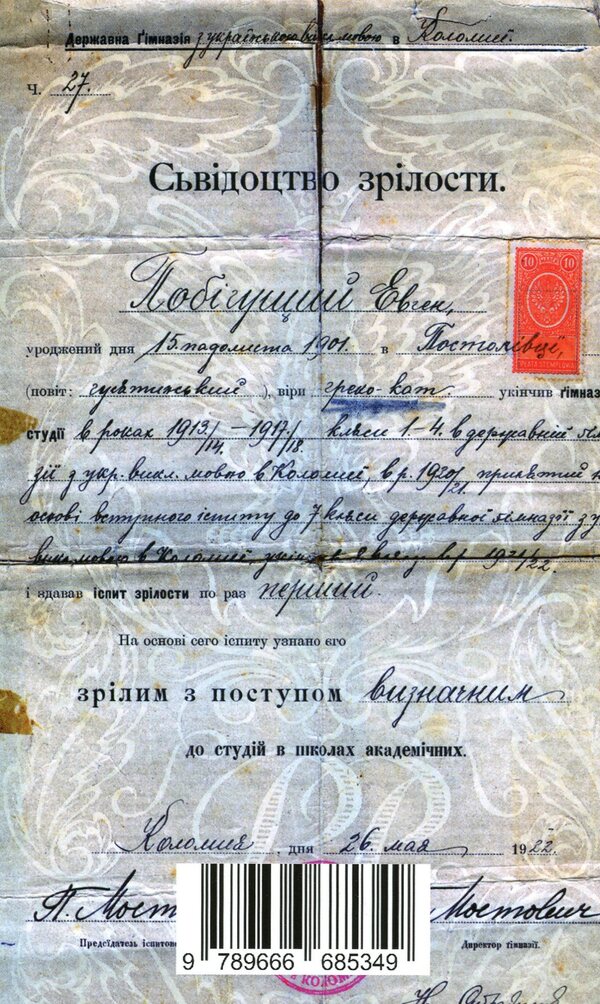 Державна Ґімназія з українською викл. мовою в Коломиї.
Ч. 27.
Сьвідоцтво зрілости.
10 10
Побігущий Евген,
уроджений дня 15 падолиста 1901. в Постолівці,
(повіт: гусятинський ), віри греко-кат. укінчив ґімназ
студії в роках 1913/14. – 1917/18. кляси 1-4. в державній ґім
зії з укр. викл. мовою в Коломиї, в р. 1920/21. принятий н
основі вступного іспиту до 7 кляси державної ґімназії з у
викл. мовою в Коломиї, 8 клясу в р. 1921/22.
і здавав іспит зрілости по раз перший.
На основі сего іспиту узнано єго
зрілим з поступом визначним
до студій в школах академічних.
Коломия , дня 26. мая 1922.
П. Мост Мостович
Предсїдатель іспитово Директор ґімназії.
9 789666 685349
КОЛОМ